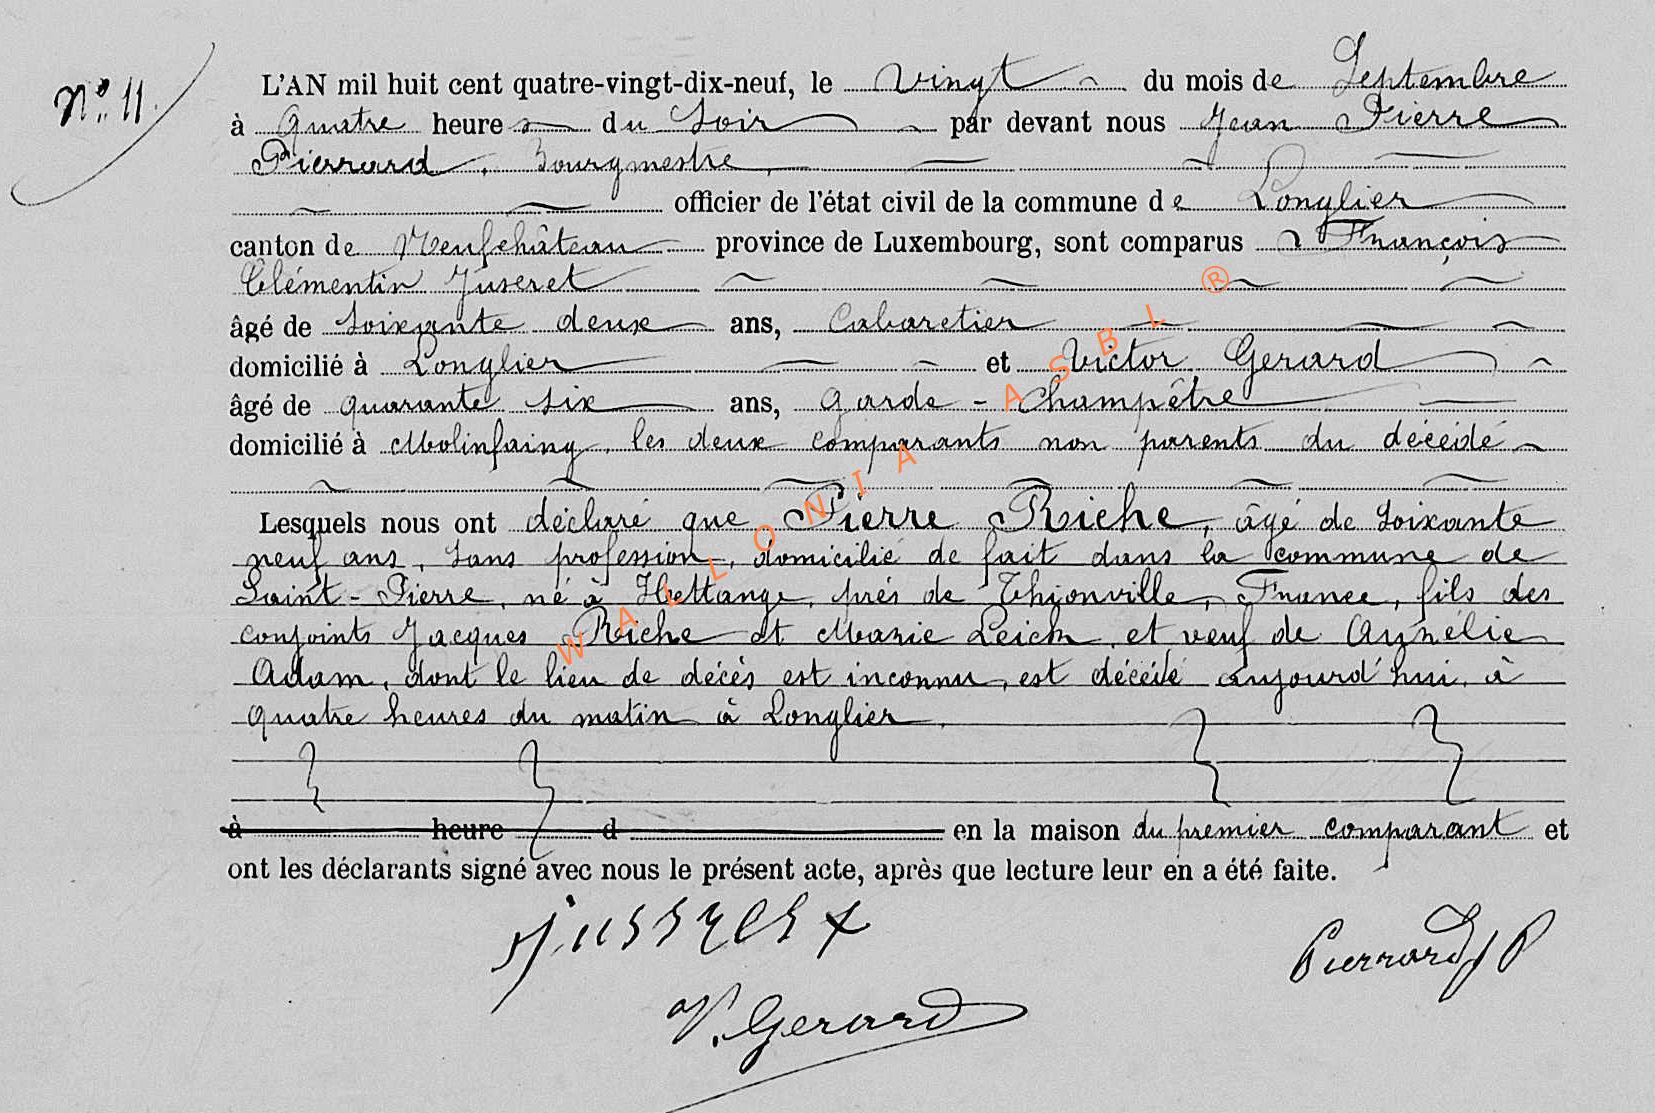 N° 11.
L'AN mil huit cent quatre-vingt-dix-neuf, le vingt du mois de Septembre
à quatre heures du Soir par devant nous Jean Pierre
Pierrard, Bourgmestre,
officier de l'état civil de la commune de Longlier
canton de Neufchâteau province de Luxembourg, sont comparus François
Clémentin Juseret
âgé de soixante deux ans, Cabaretier
domicilié à Longlier et Victor Gerard
âgé de quarante six ans, garde-Champêtre
domicilié à Molinfaing, les deux comparants non parents du décédé
Lesquels nous ont déclaré que Pierre Riche, âgé de soixante
neuf ans, sans profession, domicilié de fait dans la commune de
Saint-Pierre, né à Hettange, près de Thionville, France, fils des
conjoints Jacques Riche et Marie Leick, et veuf de Aurélie
Adam, dont le lieu de décès est inconnu, est décédé aujourd'hui, à
quatre heures du matin à Longlier.
à heure d en la maison du premier comparant et
ont les déclarants signé avec nous le présent acte, après que lecture leur en a été faite.
Pierrard J P
V. Gerard
WALLONIA ASBL ®